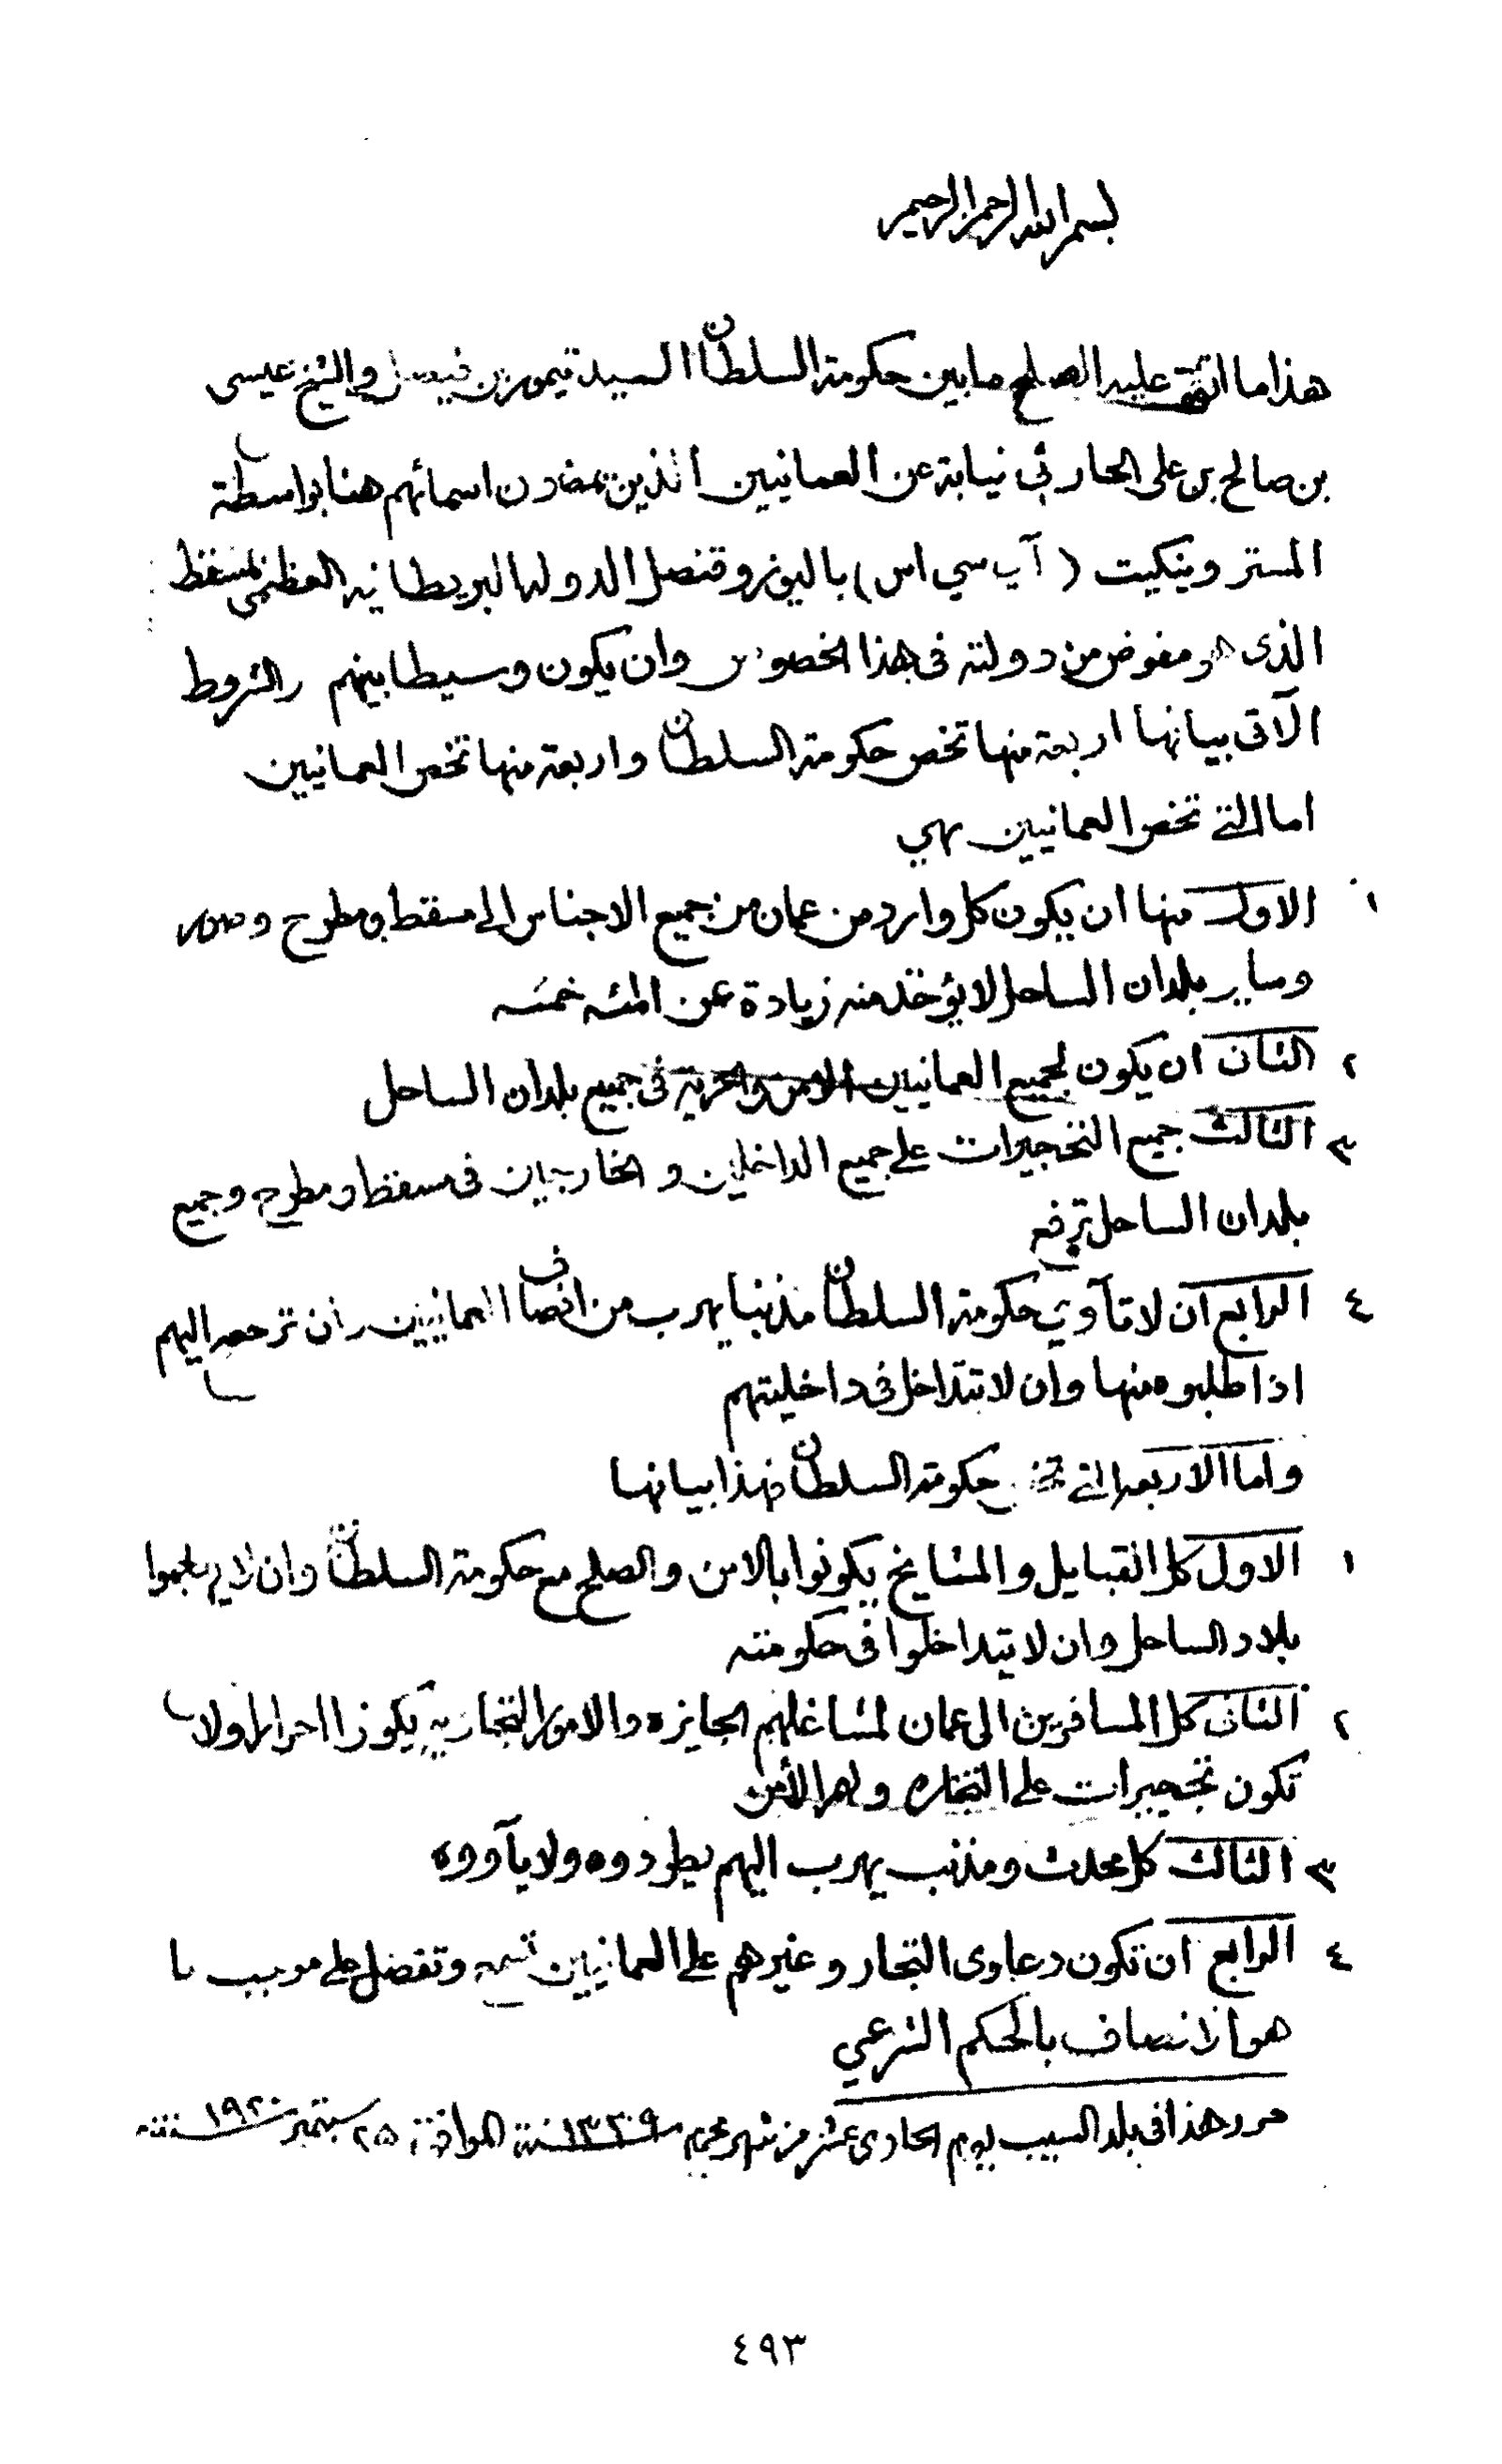 بسم الله الرحمن الرحيم
هذا ما اتفق عليه الصلح ما بين حكومة السلطان السيد تيمور بن فيصل والشيخ عيسى
بن صالح بن علي الحارثي نيابة عن العمانيين الذين يمضون اسمائهم هنا بواسطة
المستر وينكيت (آي سي اس) باليوز وقنصل الدولة البريطانيه العظمى بمسقط
الذى هو مفوض من دولته في هذا الخصوص وان يكون وسيطا بينهم والشروط
الآتى بيانها اربعة منها تخص حكومة السلطان واربعة منها تخص العمانيين
اما التي تخص العمانيين فهي
١ الاول منها ان يكون كل وارد من عمان من جميع الاجناس الى مسقط ومطرح وصور
وساير بلدان الساحل لا يؤخذ منه زيادة عن المئه خمسه
٢ الثانى ان يكون لجميع العمانيين الامن والحرية في جميع بلدان الساحل
٣ الثالث جميع التحجيرات على جميع الداخلين والخارجين في مسقط ومطرح وجميع
بلدان الساحل ترفع
٤ الرابع ان لا تأوي حكومة السلطان مذنبا يهرب من انصاف العمانيين وان ترجعه اليهم
اذا طلبوه منها وان لا تتداخل في داخليتهم
واما الاربعه التي تخص حكومة السلطان فهذا بيانها
١ الاول كل القبايل والمشايخ يكونوا بالامن والصلح مع حكومة السلطان وان لا يهاجموا
بلاد الساحل وان لا يتداخلوا في حكومته
٢ الثانى كل المسافرين الى عمان لمشاغلهم الجايزه والامور التجارية يكونوا احرارا ولا
تكون تحجيرات على التجاره ولهم الأمن
٣ الثالث كل محدث ومذنب يهرب اليهم يطردوه ولا يآووه
٤ الرابع ان تكون دعاوى التجار وغيرهم على العمانيين تسمع وتفصل على موجب ما
هو الانصاف بالحكم الشرعي
حرر هذا في بلد السيب يوم الحادى عشر من شهر محرم سنة ١٣٣٩ الموافق ٢٥ سبتمبر سنة ١٩٢٠
٤٩٣